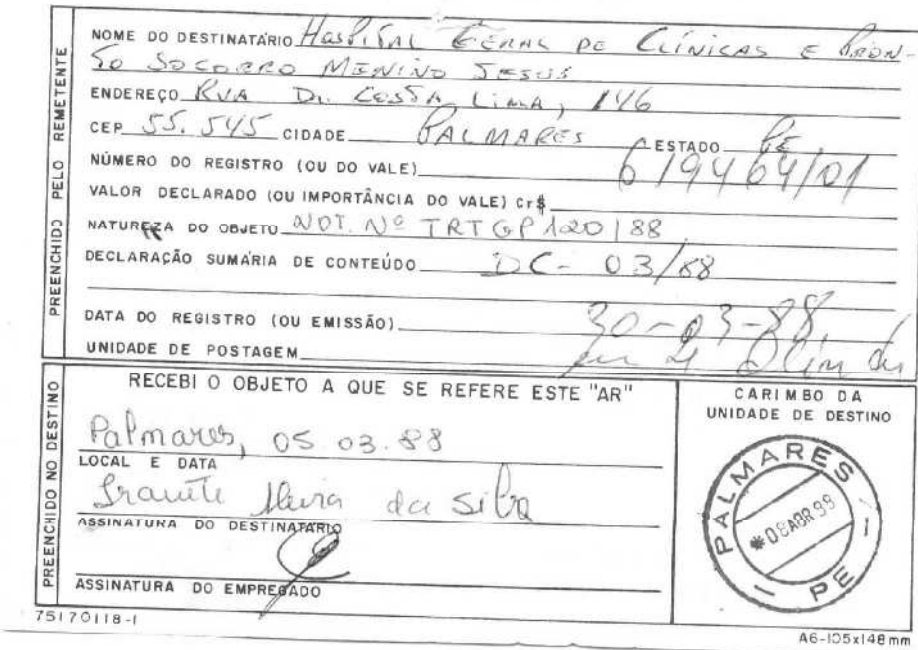 PREENCHIDO PELO REMETENTE
NOME DO DESTINATÁRIO Hospital Geral de Clínicas e Pron-
to Socorro Menino Jesus
ENDEREÇO Rua Dr. Costa Lima, 146
CEP 55.545 CIDADE Palmares ESTADO PE
NÚMERO DO REGISTRO (OU DO VALE) 619464/01
VALOR DECLARADO (OU IMPORTÂNCIA DO VALE) Cr$
NATUREZA DO OBJETO NOT. Nº TRT GP 120/88
DECLARAÇÃO SUMÁRIA DE CONTEÚDO DC- 03/88
DATA DO REGISTRO (OU EMISSÃO) 30-03-88
UNIDADE DE POSTAGEM
PREENCHIDO NO DESTINO
RECEBI O OBJETO A QUE SE REFERE ESTE "AR"
Palmares, 05 03.88
LOCAL E DATA
da Silva
ASSINATURA DO DESTINATÁRIO
ASSINATURA DO EMPREGADO
CARIMBO DA
UNIDADE DE DESTINO
PALMARES
*08 ABR 88
PE
75170118-1
A6-105x148mm